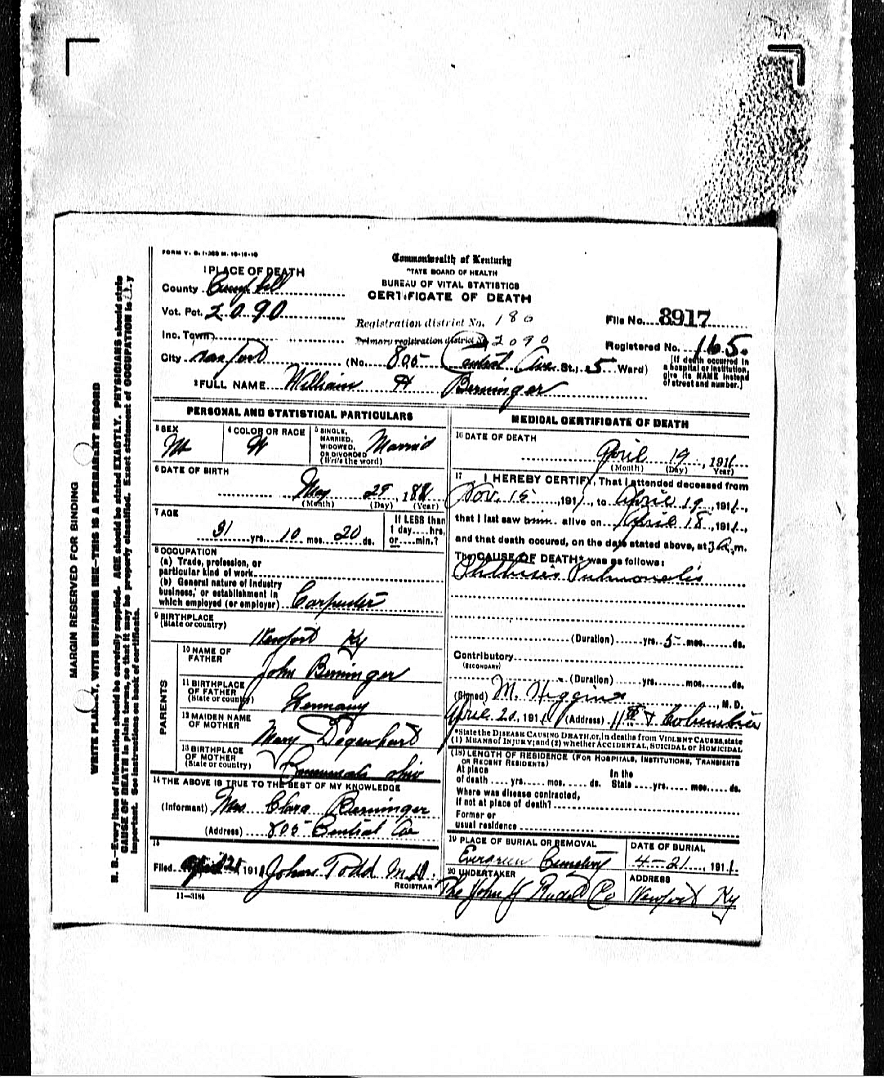 FORM V. S. 1-
Commonwealth of Kentucky
STATE BOARD OF HEALTH
BUREAU OF VITAL STATISTICS
CERTIFICATE OF DEATH
1 PLACE OF DEATH
County Campbell
Vot. Pct. 2090
Registration district No. 180
File No. 8917
Inc. Town
Primary registration district No. 2090
Registered No. 165.
City Newport (No. 805 Central Ave St.; 5 Ward)
[If death occurred in a hospital or institution, give its NAME instead of street and number.]
2 FULL NAME William H Berninger
PERSONAL AND STATISTICAL PARTICULARS
3 SEX M
4 COLOR OR RACE W
5 SINGLE, MARRIED, WIDOWED, OR DIVORCED (Write the word) Married
6 DATE OF BIRTH
May 29, 18
(Month) (Day) (Year)
7 AGE
31 yrs. 10 mos. 20 ds.
If LESS than 1 day....hrs. or....min.?
8 OCCUPATION
(a) Trade, profession, or particular kind of work
(b) General nature of industry business, or establishment in which employed (or employer) Carpenter
9 BIRTHPLACE
(State or country)
Newport Ky
PARENTS
10 NAME OF FATHER John Berninger
11 BIRTHPLACE OF FATHER (State or country) Germany
12 MAIDEN NAME OF MOTHER Mary Degenhart
13 BIRTHPLACE OF MOTHER (State or country) Cincinnati Ohio
14 THE ABOVE IS TRUE TO THE BEST OF MY KNOWLEDGE
(Informant) Mrs. Clara Berninger
(Address) 805 Central Av
15
Filed April 21 1911 John Todd M.D.
REGISTRAR
11-3184
MEDICAL CERTIFICATE OF DEATH
16 DATE OF DEATH
April 19, 1911
(Month) (Day) (Year)
17 I HEREBY CERTIFY, That I attended deceased from
Nov. 15, 191 , to April 19, 1911,
that I last saw him alive on April 18, 1911,
and that death occured, on the date stated above, at 3 a.m.
The CAUSE OF DEATH* was as follows:
Phthisis Pulmonalis
(Duration) yrs. 5 mos. ds.
Contributory
(SECONDARY)
(Duration) yrs. mos. ds.
(Signed) M. Higgins, M. D.
April 20, 1911 (Address) 11th & Columbia
*State the DISEASE CAUSING DEATH, or, in deaths from VIOLENT CAUSES, state
(1) MEANS of INJURY; and (2) whether ACCIDENTAL, SUICIDAL or HOMICIDAL
(18) LENGTH OF RESIDENCE (FOR HOSPITALS, INSTITUTIONS, TRANSIENTS OR RECENT RESIDENTS)
At place of death .... yrs. .... mos. .... ds. In the State .... yrs. .... mos. .... ds.
Where was disease contracted, if not at place of death?
Former or usual residence
19 PLACE OF BURIAL OR REMOVAL
Evergreen Cemetery
DATE OF BURIAL
4-21, 1911.
20 UNDERTAKER
The John J Co
ADDRESS
Newport Ky
MARGIN RESERVED FOR BINDING
WRITE PLAINLY, WITH UNFADING INK—THIS IS A PERMANENT RECORD
N. B.—Every item of information should be carefully supplied. AGE should be stated EXACTLY. PHYSICIANS should state
CAUSE OF DEATH in plain terms, so that it may be properly classified. Exact statement of OCCUPATION is very
important. See instructions on back of certificate.